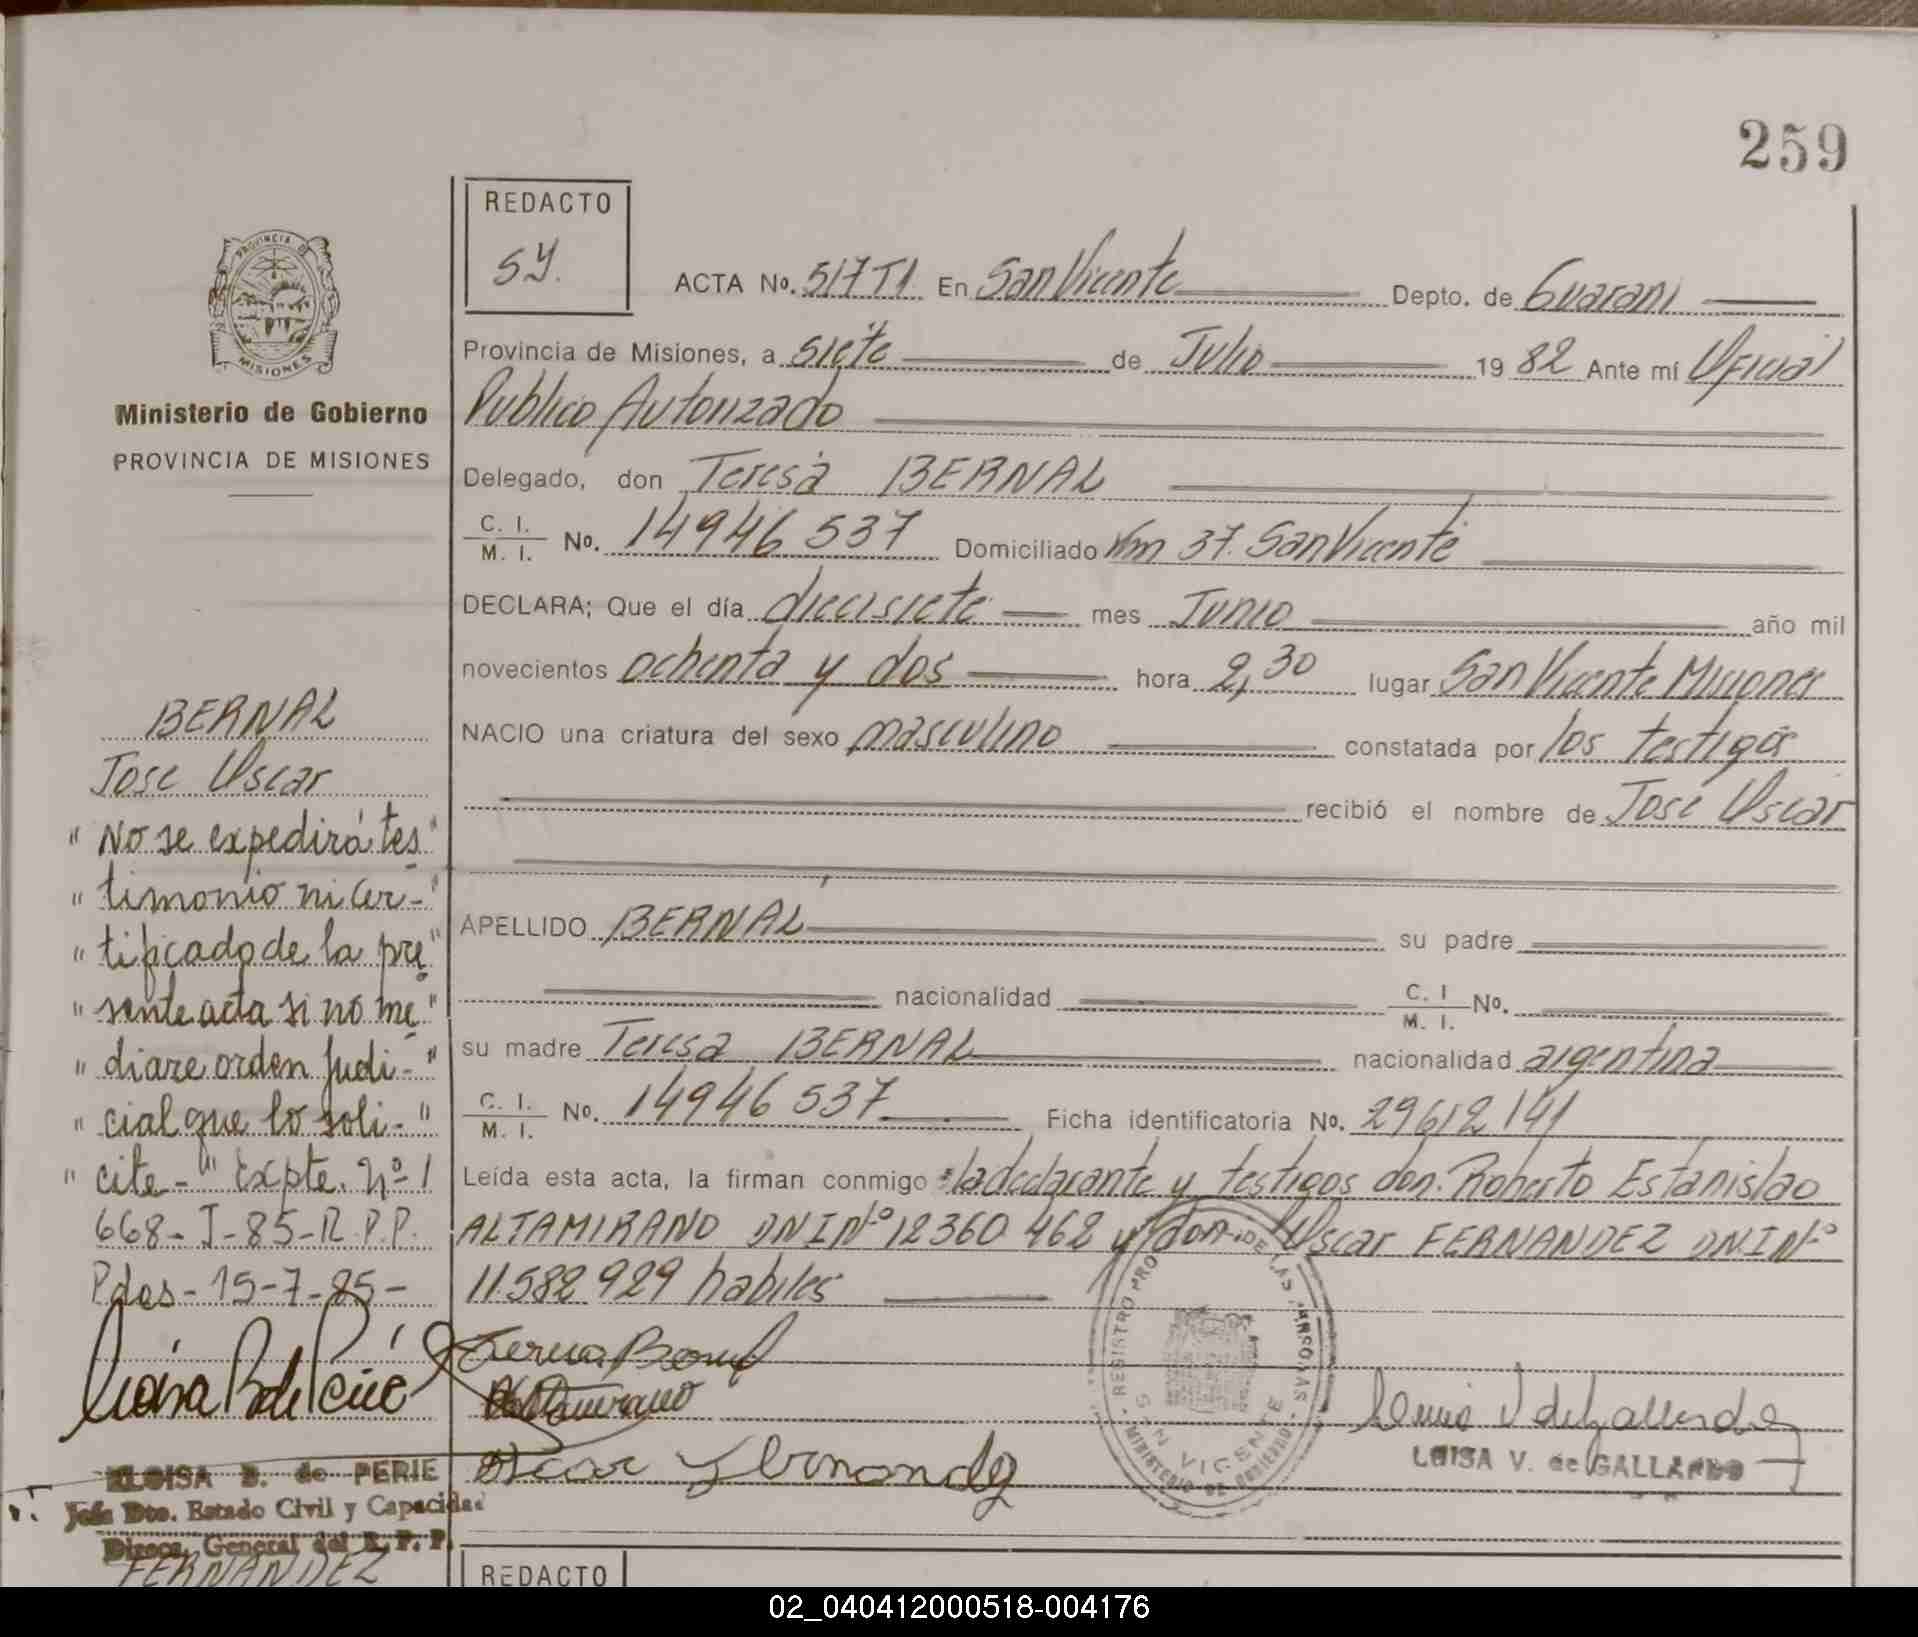 259
REDACTO
SY.
ACTA No. 517 T1 En San Vicente Depto. de Guarani
Provincia de Misiones, a siete de Julio 1982 Ante mí Oficial
Publico Autorizado
Delegado, don Teresa BERNAL
C. I. / M. I. No. 14946537 Domiciliado Km 37. San Vicente
DECLARA; Que el día diecisiete mes Junio año mil
novecientos ochenta y dos hora 2,30 lugar San Vicente Misiones
NACIO una criatura del sexo masculino constatada por los testigos
recibió el nombre de José Oscar
APELLIDO BERNAL su padre
nacionalidad C. I / M. I. No.
su madre Teresa BERNAL nacionalidad argentina
C. I. / M. I. No. 14946537 Ficha identificatoria No. 29612141
Leída esta acta, la firman conmigo la declarante y testigos don. Roberto Estanislao
ALTAMIRANO DNI Nº 12360462 y don Oscar FERNANDEZ DNI Nº
11.582.929 habiles
Oscar Fernandez
REGISTRO PRO DE LAS PERSONAS
SAN VICENTE
MINISTERIO DE GOBIERNO
LUISA V. de GALLARDO
PROVINCIA DE
MISIONES
Ministerio de Gobierno
PROVINCIA DE MISIONES
BERNAL
Jose Oscar
"No se expedirá tes"
"timonio ni cer-"
"tificado de la pre"
"sente acta si no me"
"diare orden Judi-"
"cial que lo soli-"
"cite-" Expte. Nº 1
668-J-85-R.P.P.
Pdas-15-7-85-
ELOISA B. de PERIE
Jefa Dto. Estado Civil y Capacidad
Direcc. General del R. P. P.
FERNANDEZ
REDACTO
02_040412000518-004176